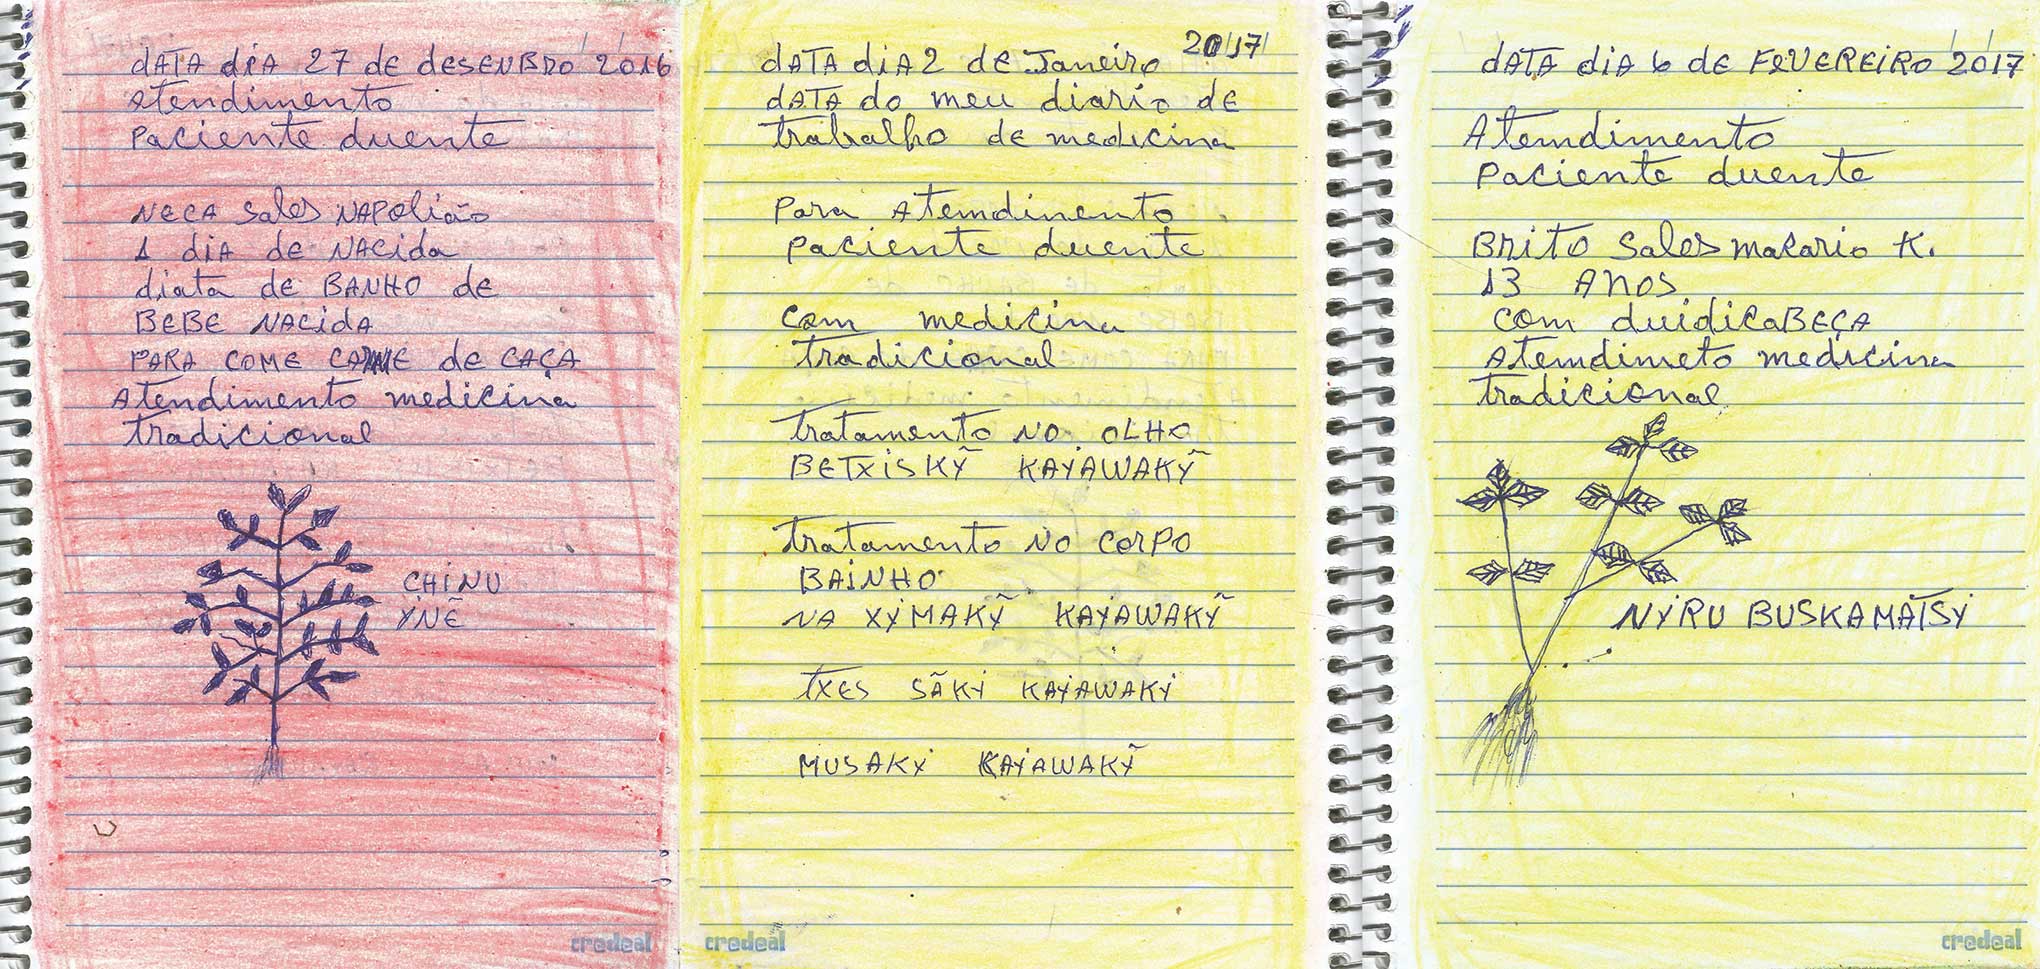 dATA dIA 27 dE dESENBRO 2016
Atendimento
Paciente duente
NECA Sales NAPOlião
1 DIA dE NACIda
diata de BANHO de
BEBE NACIdA
PARA COME CARNE de CAÇA
Atendimento medicina
tradicional
CHINU
YNẼ
credeal
2017
dATA dIA 2 de Janeiro
dATA do meu diario de
trabalho de medicina
Para Atemdinento
paciente duente
com medicina
tradicional
tratamento NO OLHO
BETXISKỸ KAYAWAKỸ
tratamento NO CORPO
BAINHO
NA XYMAKỸ KAYAWAKỸ
TXES SÃKY KAYAWAKY
MUSAKY KAYAWAKỸ
credeal
dATA dIA 6 dE FEVEREIRO 2017
Atemdimento
Paciente duente
BRITO Sales maRario K.
13 ANOS
COM duidicaBEÇA
Atemdimeto medicina
tradicional
NYRU BUSKAMÃTSY
credeal